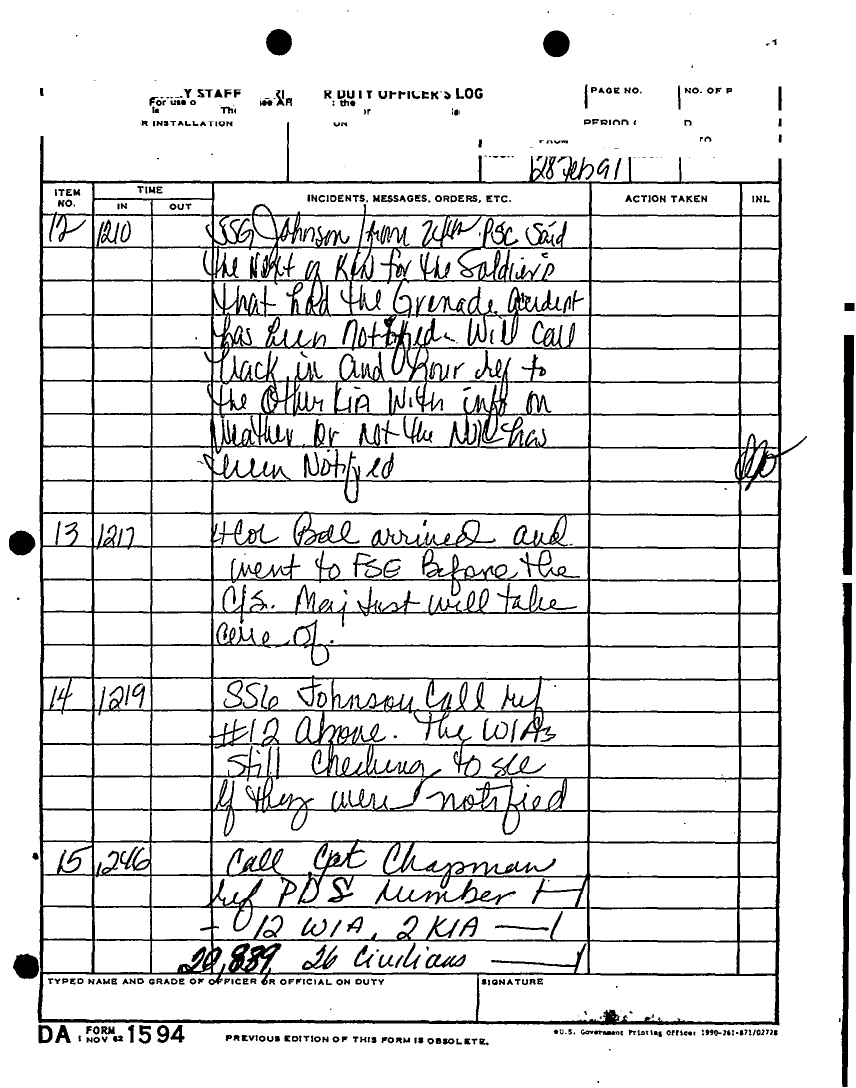 Y STAFF R DUTY OFFICER'S LOG
PAGE NO.
NO. OF P
For use o see AR
R INSTALLATION
PERIOD
28 Feb 91
ITEM NO.
TIME
IN
OUT
INCIDENTS, MESSAGES, ORDERS, ETC.
ACTION TAKEN
INL
12 1210 SSG Johnson from PSC Said
the Next of Kin for the Soldier's
that had the Grenade Accident
has been Notified. Will Call
back in and hour ref to
the Other Kia With info on
Weather or not the NOK has
been Notified
13 1217 Ltcol Ball arrived and
went to FSE Before the
C/S. Maj Just will take
care of.
14 1219 SSG Johnson Call ref
#12 Above. The WIAs
Still Checking to see
if they were notified
15 1246 Call Cpt Chapman
ref PDS Number
- 12 WIA, 2 KIA
20,839, 26 Civilians
TYPED NAME AND GRADE OF OFFICER OR OFFICIAL ON DUTY
SIGNATURE
DA FORM 1 NOV 62 1594
PREVIOUS EDITION OF THIS FORM IS OBSOLETE.
U.S. Government Printing Office: 1990-261-871/02728